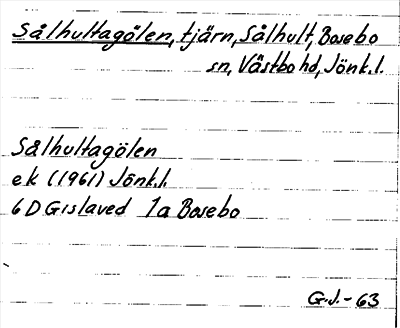 Sålhultagölen, tjärn, Sålhult, Bosebo
sn, Västbo hd, Jönk.l.
Sålhultagölen
ek (1961) Jönk.l.
6D Gislaved 1a Bosebo
G.J.-63